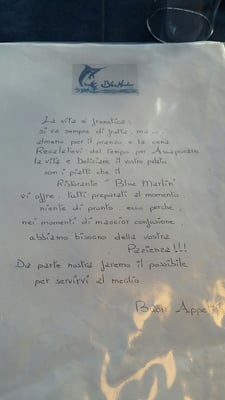 Blue Marlin
La vita è frenetica;
si va sempre di fretta, ma...
almeno per il pranzo e la cena
Regalatevi del tempo per Assaporare
la vita e Deliziare il vostro palato
con i piatti che il
Ristorante "Blue Marlin"
vi offre, tutti preparati al momento
niente di pronto, ecco perchè,
nei momenti di maggior confusione
abbiamo bisogno della vostra
Pazienza!!!
Da parte nostra faremo il possibile
per servirvi al meglio
Buon Appetito